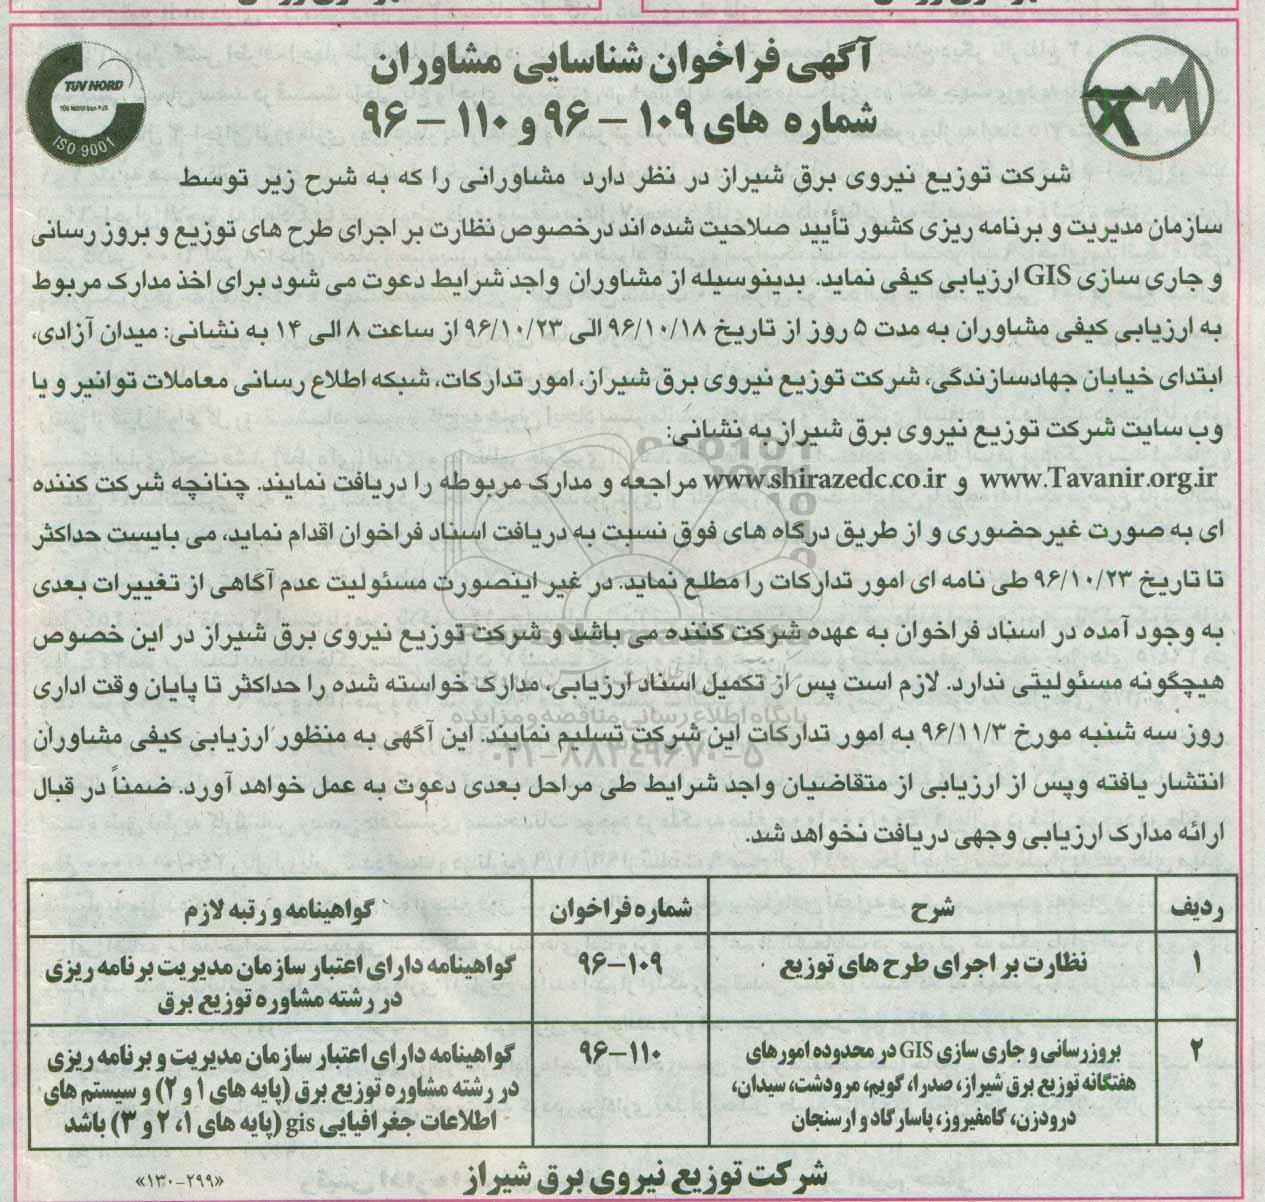 آگهی فراخوان شناسایی مشاوران
شماره های ۱۰۹ – ۹۶ و ۱۱۰ – ۹۶
TÜV NORD
ISO 9001
شرکت توزیع نیروی برق شیراز در نظر دارد مشاورانی را که به شرح زیر توسط
سازمان مدیریت و برنامه ریزی کشور تأیید صلاحیت شده اند درخصوص نظارت بر اجرای طرح های توزیع و بروز رسانی
و جاری سازی GIS ارزیابی کیفی نماید. بدینوسیله از مشاوران واجد شرایط دعوت می شود برای اخذ مدارک مربوط
به ارزیابی کیفی مشاوران به مدت ۵ روز از تاریخ ۹۶/۱۰/۱۸ الی ۹۶/۱۰/۲۳ از ساعت ۸ الی ۱۴ به نشانی: میدان آزادی،
ابتدای خیابان جهادسازندگی، شرکت توزیع نیروی برق شیراز، امور تدارکات، شبکه اطلاع رسانی معاملات توانیر و یا
وب سایت شرکت توزیع نیروی برق شیراز به نشانی:
www.Tavanir.org.ir و www.shirazedc.co.ir مراجعه و مدارک مربوطه را دریافت نمایند. چنانچه شرکت کننده
ای به صورت غیرحضوری و از طریق درگاه های فوق نسبت به دریافت اسناد فراخوان اقدام نماید، می بایست حداکثر
تا تاریخ ۹۶/۱۰/۲۳ طی نامه ای امور تدارکات را مطلع نماید. در غیر اینصورت مسئولیت عدم آگاهی از تغییرات بعدی
به وجود آمده در اسناد فراخوان به عهده شرکت کننده می باشد و شرکت توزیع نیروی برق شیراز در این خصوص
هیچگونه مسئولیتی ندارد. لازم است پس از تکمیل اسناد ارزیابی، مدارک خواسته شده را حداکثر تا پایان وقت اداری
پایگاه اطلاع رسانی مناقصه و مزایده
روز سه شنبه مورخ ۹۶/۱۱/۳ به امور تدارکات این شرکت تسلیم نمایند. این آگهی به منظور ارزیابی کیفی مشاوران
۰۲۱-۸۸۳۴۹۶۷۰-۵
انتشار یافته وپس از ارزیابی از متقاضیان واجد شرایط طی مراحل بعدی دعوت به عمل خواهد آورد. ضمناً در قبال
ارائه مدارک ارزیابی وجهی دریافت نخواهد شد.
ردیف شرح شماره فراخوان گواهینامه و رتبه لازم
۱ نظارت بر اجرای طرح های توزیع ۹۶-۱۰۹ گواهینامه دارای اعتبار سازمان مدیریت برنامه ریزی
در رشته مشاوره توزیع برق
۲ بروزرسانی و جاری سازی GIS در محدوده امورهای ۹۶-۱۱۰ گواهینامه دارای اعتبار سازمان مدیریت و برنامه ریزی
هفتگانه توزیع برق شیراز، صدرا، گویم، مرودشت، سیدان، در رشته مشاوره توزیع برق (پایه های ۱ و ۲) و سیستم های
درودزن، کامفیروز، پاسارگاد و ارسنجان اطلاعات جغرافیایی gis (پایه های ۱، ۲ و ۳) باشد
شرکت توزیع نیروی برق شیراز
«۱۳۰-۲۹۹»